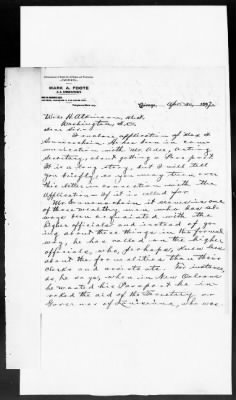 MARK A. FOOTE
Chicago, Apr. 20, 192
Wm. H. Atkinson, Est.
Washington, D.C.
Dear Sir:
I enclose application of Max
He has been in com-
munication with Mr. Adee, Acting
Secretary, about getting a Passport
It is a long story, but I will tell
you briefly, so you may turn over
this letter in connection with the
application if it is called for.
Mr. it seems is one
of those wealthy men who has al-
ways been acquainted with the
higher officials and instead of go-
ing about these things in the formal
way, he has called on the higher
officials, who, perhaps, knew less
about the formalities than these
clerks and assistants. For instance,
as he says, when in New Orleans
he wanted his Passport he in-
voked the aid of the Secretary, or
Governor of Louisiana, who was